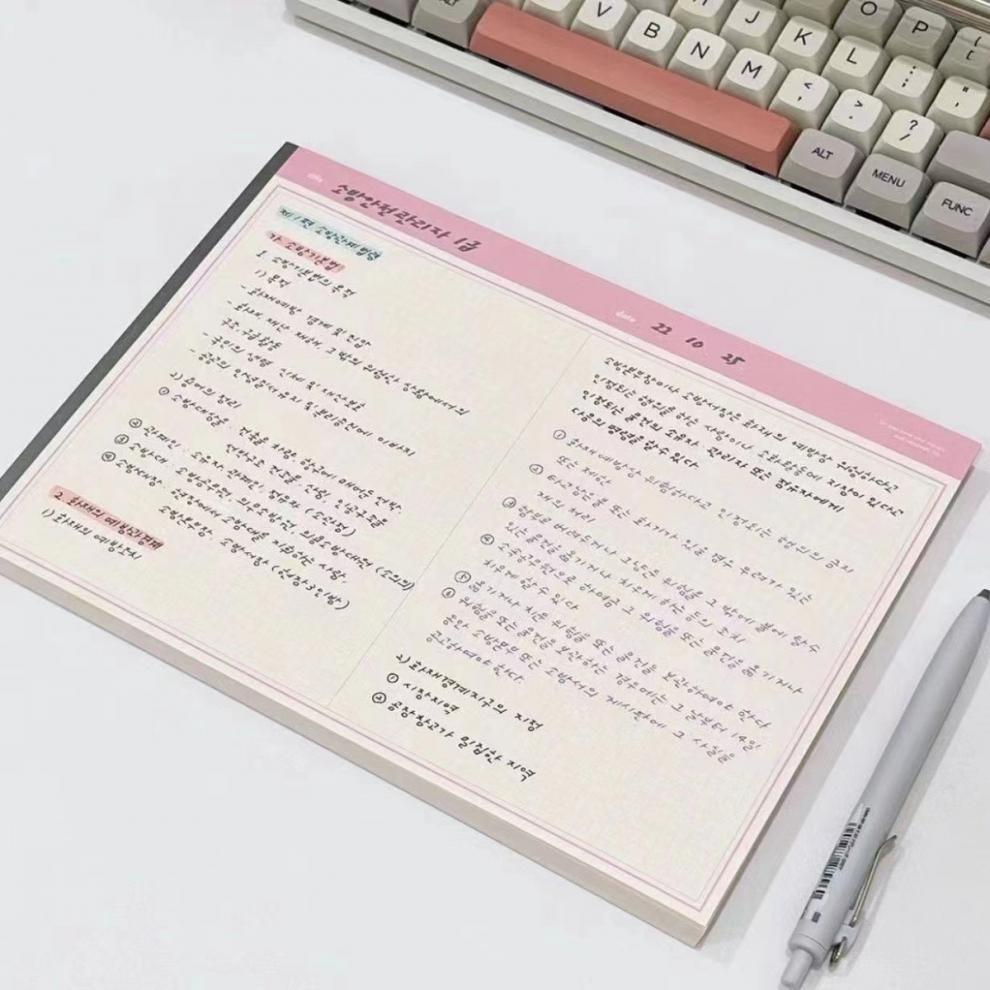 ALT
V
B
N
M
J
K
L
O
P
<
,
>
.
?
/
:
;
"
'
{
[
ALT
MENU
FUNC
title 소방안전관리자 1급
date 22 10 25
제1편 소방관계법령
가. 소방기본법
1. 소방기본법의 목적
1) 목적
- 화재예방 경계 및 진압
- 화재, 재난·재해, 그 밖의 위험한 상황에서의
구조·구급활동
- 국민의 생명 신체 및 재산보호
- 공공의 안녕질서유지 및 복리증진에 이바지
2) 용어의 정의
① 소방대상물: 건축물, 차량, 항구에 매어둔 선박
선박건조 구조물, 산림, 인공구조물
② 관계인: 소유자·관리자·점유자
③ 소방대: 소방공무원, 의무소방원, 의용소방대원
④ 소방대장: 소방본부장, 소방서장
현장에서 소방대를 지휘하는 사람
2. 화재의 예방과 경계
1) 화재의 예방조치
소방본부장이나 소방서장은 화재의 예방상 위험하다고
인정되는 행위를 하는 사람이나 소화활동에 지장이 있다고
인정되는 물건의 소유자·관리자 또는 점유자에게
다음의 명령을 할 수 있다
① 화재예방상 위험하다고 인정되는 행위의 금지
또는 제한
② 타고남은 불 또는 화기가 있을 경우 우려가 있는
재의 처리
③ 함부로 버려두거나 그냥둔 위험물 그 밖에 불에 탈 수
있는 물건을 옮기거나 치우게 하는 등의 조치
④ 소방공무원으로 하여금 그 위험물 또는 물건을 옮기거나
치우게 할 수 있다
⑤ 옮기거나 치운 위험물 또는 물건을 보관하여야 한다
⑥ 위험물 또는 물건을 보관하는 경우에는 그 날부터 14일
동안 소방본부 또는 소방서의 게시판에 그 사실을
공고하여야 한다
2) 화재경계지구의 지정
① 시장지역
② 공장·창고가 밀집한 지역